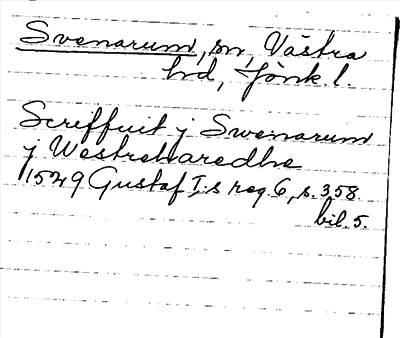 Svenarum, sn, Västra
hd, Jönk. l.
Screffuit j Swenarum
j Westrehæredhe
1529 Gustaf I:s reg. 6, s. 358
bil. 5.